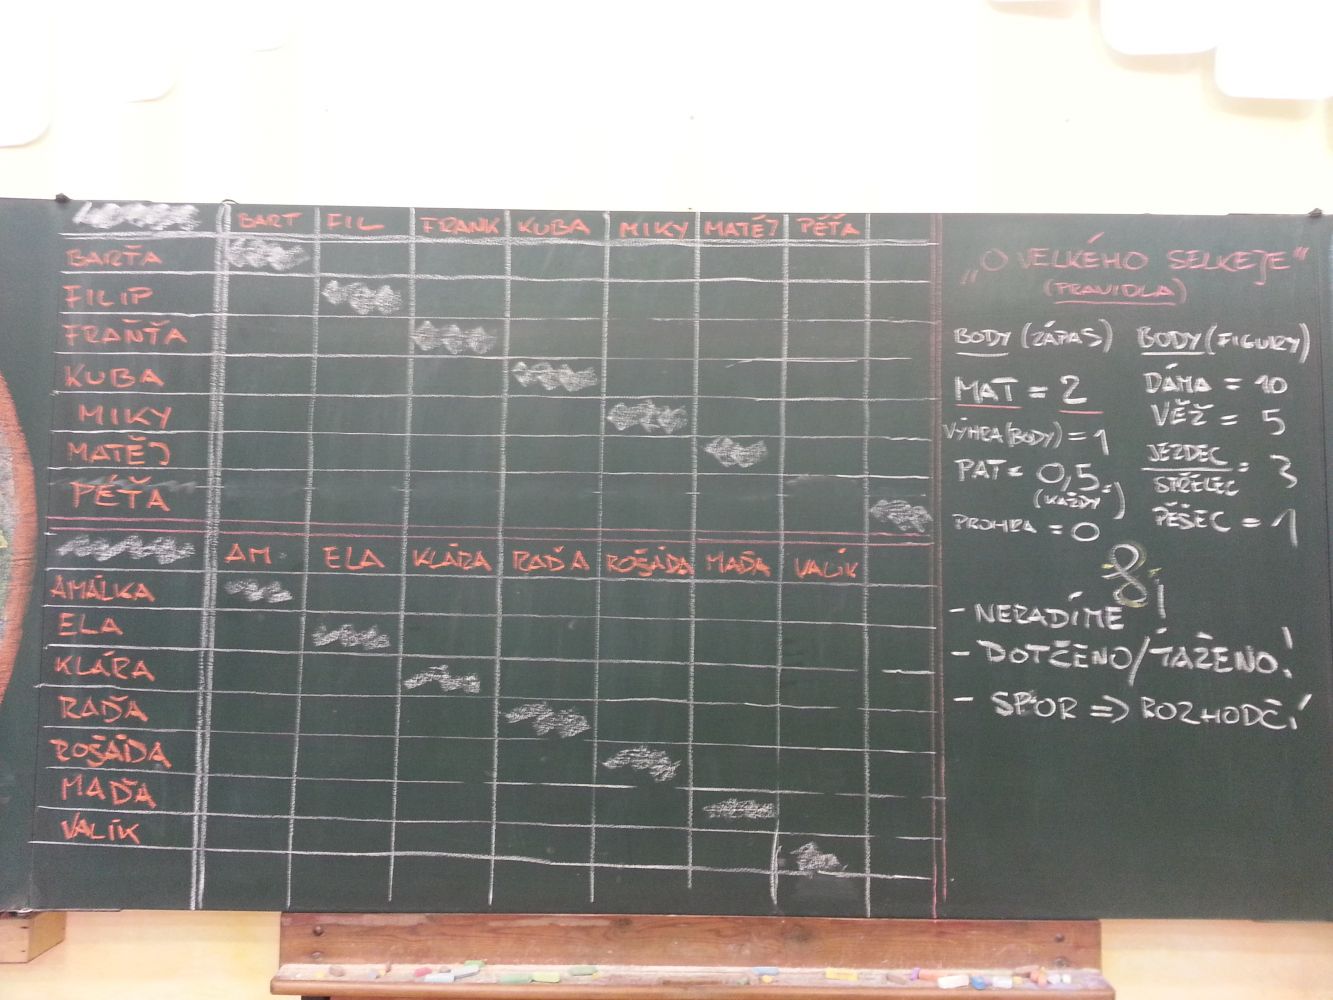 BART FIL FRANK KUBA MIKY MATĚJ PÉŤA
BARŤA
FILIP
FRAŇŤA
KUBA
MIKY
MATĚJ
PÉŤA
AM ELA KLÁRA RAĎA ROŠÁDA MAĎA VALÍK
AMÁLKA
ELA
KLÁRA
RAĎA
ROŠÁDA
MAĎA
VALÍK
„O VELKÉHO SELKEJE"
(PRAVIDLA)
BODY (ZÁPAS)
MAT = 2
VÝHRA (BODY) = 1
PAT = 0,5
(KAŽDÝ)
PROHRA = 0
BODY (FIGURY)
DÁMA = 10
VĚŽ = 5
JEZDEC
STŘELEC = 3
PĚŠEC = 1
- NERADÍME!
- DOTČENO/TAŽENO!
- SPOR => ROZHODČÍ